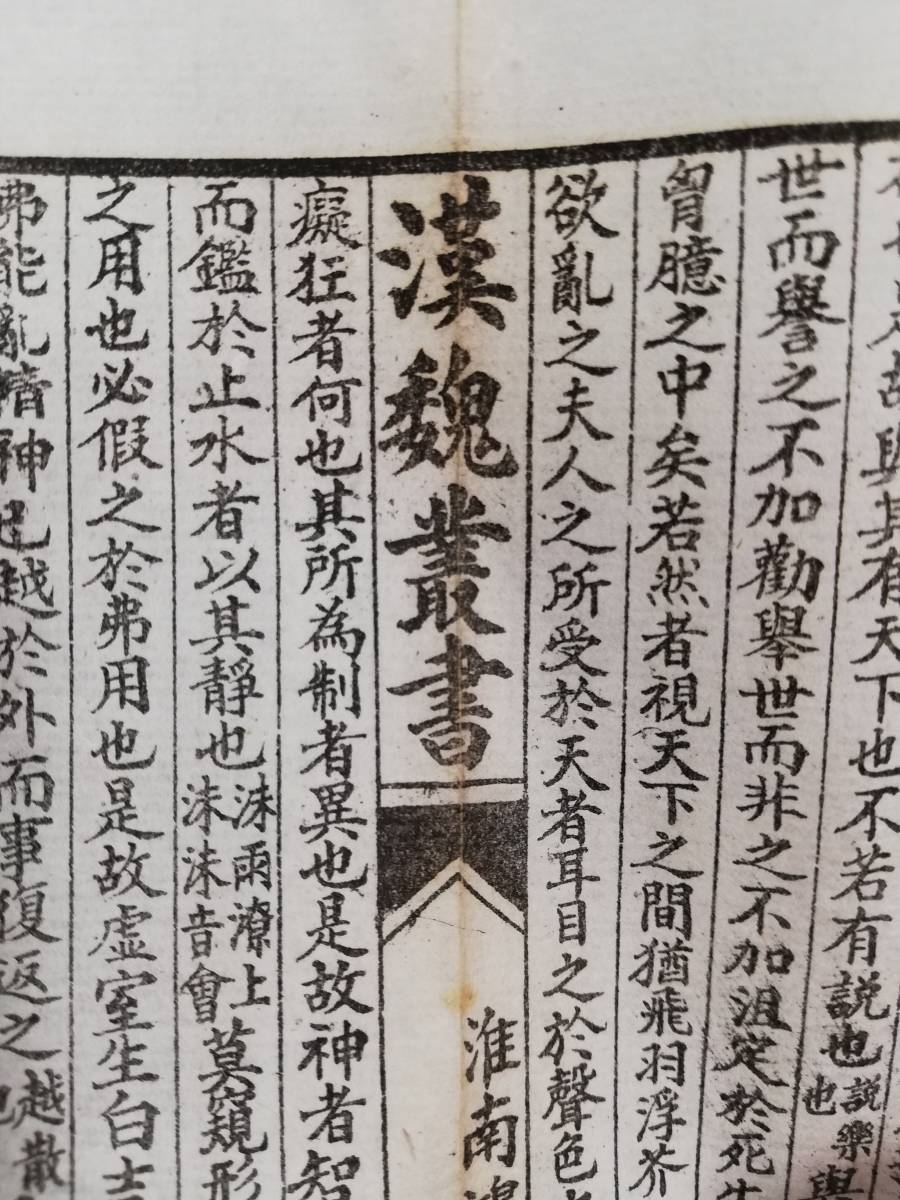 其有天下也不若有説也説樂也與
世而譽之不加勸舉世而非之不加沮定於死
胷臆之中矣若然者視天下之間猶飛羽浮芥
欲亂之夫人之所受於天者耳目之於聲色
漢魏叢書
淮南鴻
癡狂者何也其所為制者異也是故神者智
而鑑於止水者以其靜也沬雨潦上沬沬音會莫窺形
之用也必假之於弗用也是故虛室生白
弗能亂精神已越於外而事復返之越散